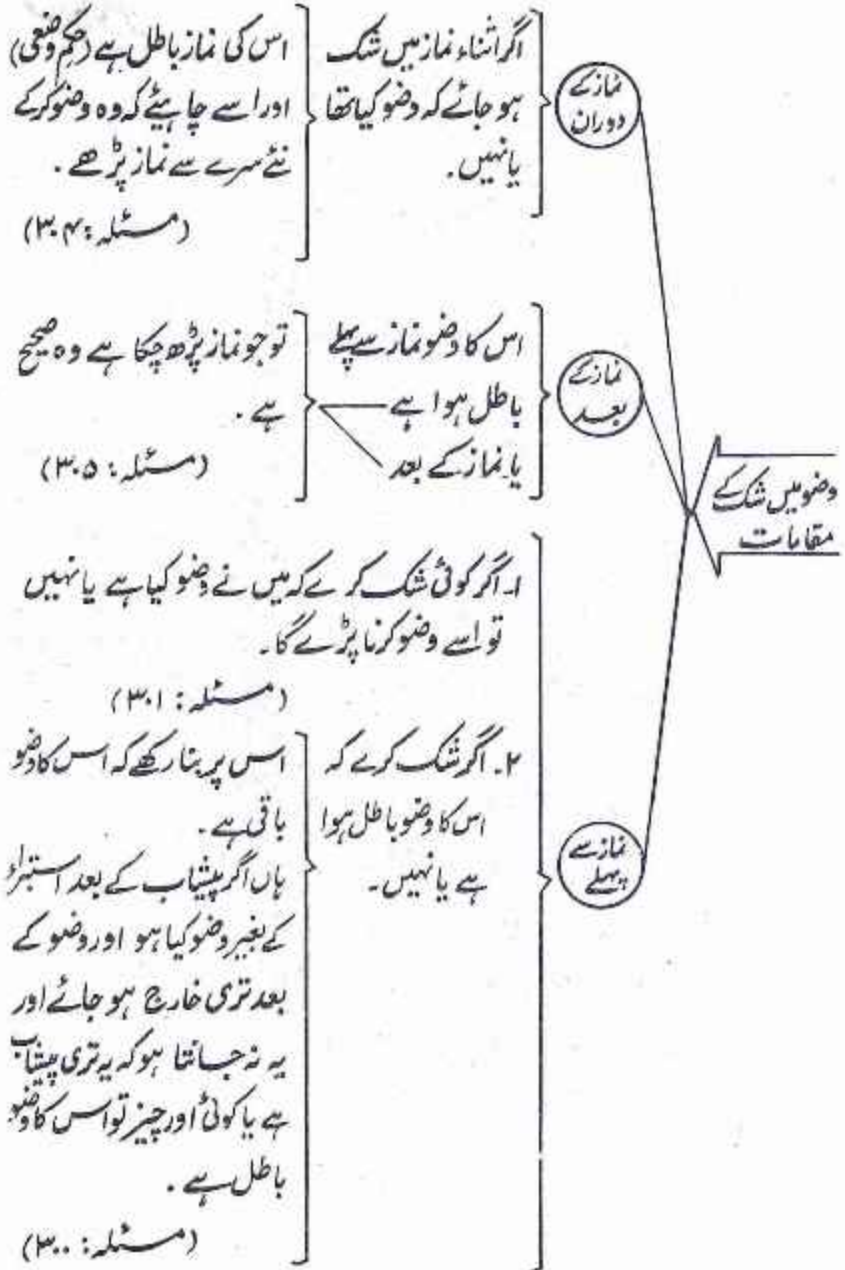 وضو میں شک کے
مقامات
نماز کے
دوران
اگر اثناء نماز میں شک
ہو جائے کہ وضو کیا تھا
یا نہیں۔
اس کی نماز باطل ہے (حکم وضعی)
اور اسے چاہیئے کہ وہ وضو کرکے
نئے سرے سے نماز پڑھے۔
(مسئلہ: ۳۰۴)
نماز کے
بعد
اس کا وضو نماز سے پہلے
باطل ہوا ہے
یا نماز کے بعد
تو جو نماز پڑھ چکا ہے وہ صحیح
ہے۔
(مسئلہ: ۳۰۵)
نماز سے
پہلے
۱۔ اگر کوئی شک کرے کہ میں نے وضو کیا ہے یا نہیں
تو اسے وضو کرنا پڑے گا۔
(مسئلہ: ۳۰۱)
۲۔ اگر شک کرے کہ
اس کا وضو باطل ہوا
ہے یا نہیں۔
اس پر بنا رکھے کہ اس کا وضو
باقی ہے۔
ہاں اگر پیشاب کے بعد استبراء
کے بغیر وضو کیا ہو اور وضو کے
بعد تری خارج ہو جائے اور
یہ نہ جانتا ہو کہ یہ تری پیشاب
ہے یا کوئی اور چیز تو اس کا وضو
باطل ہے۔
(مسئلہ: ۳۰۰)